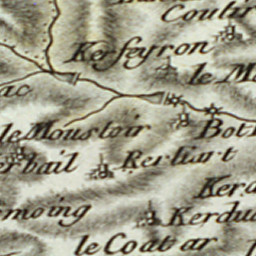 Coutir
Kerfeyron
le M
ac
le Moustoir
Bot
erbail
Rerliart
Kerd
moing
Kerdu
le Coat ar